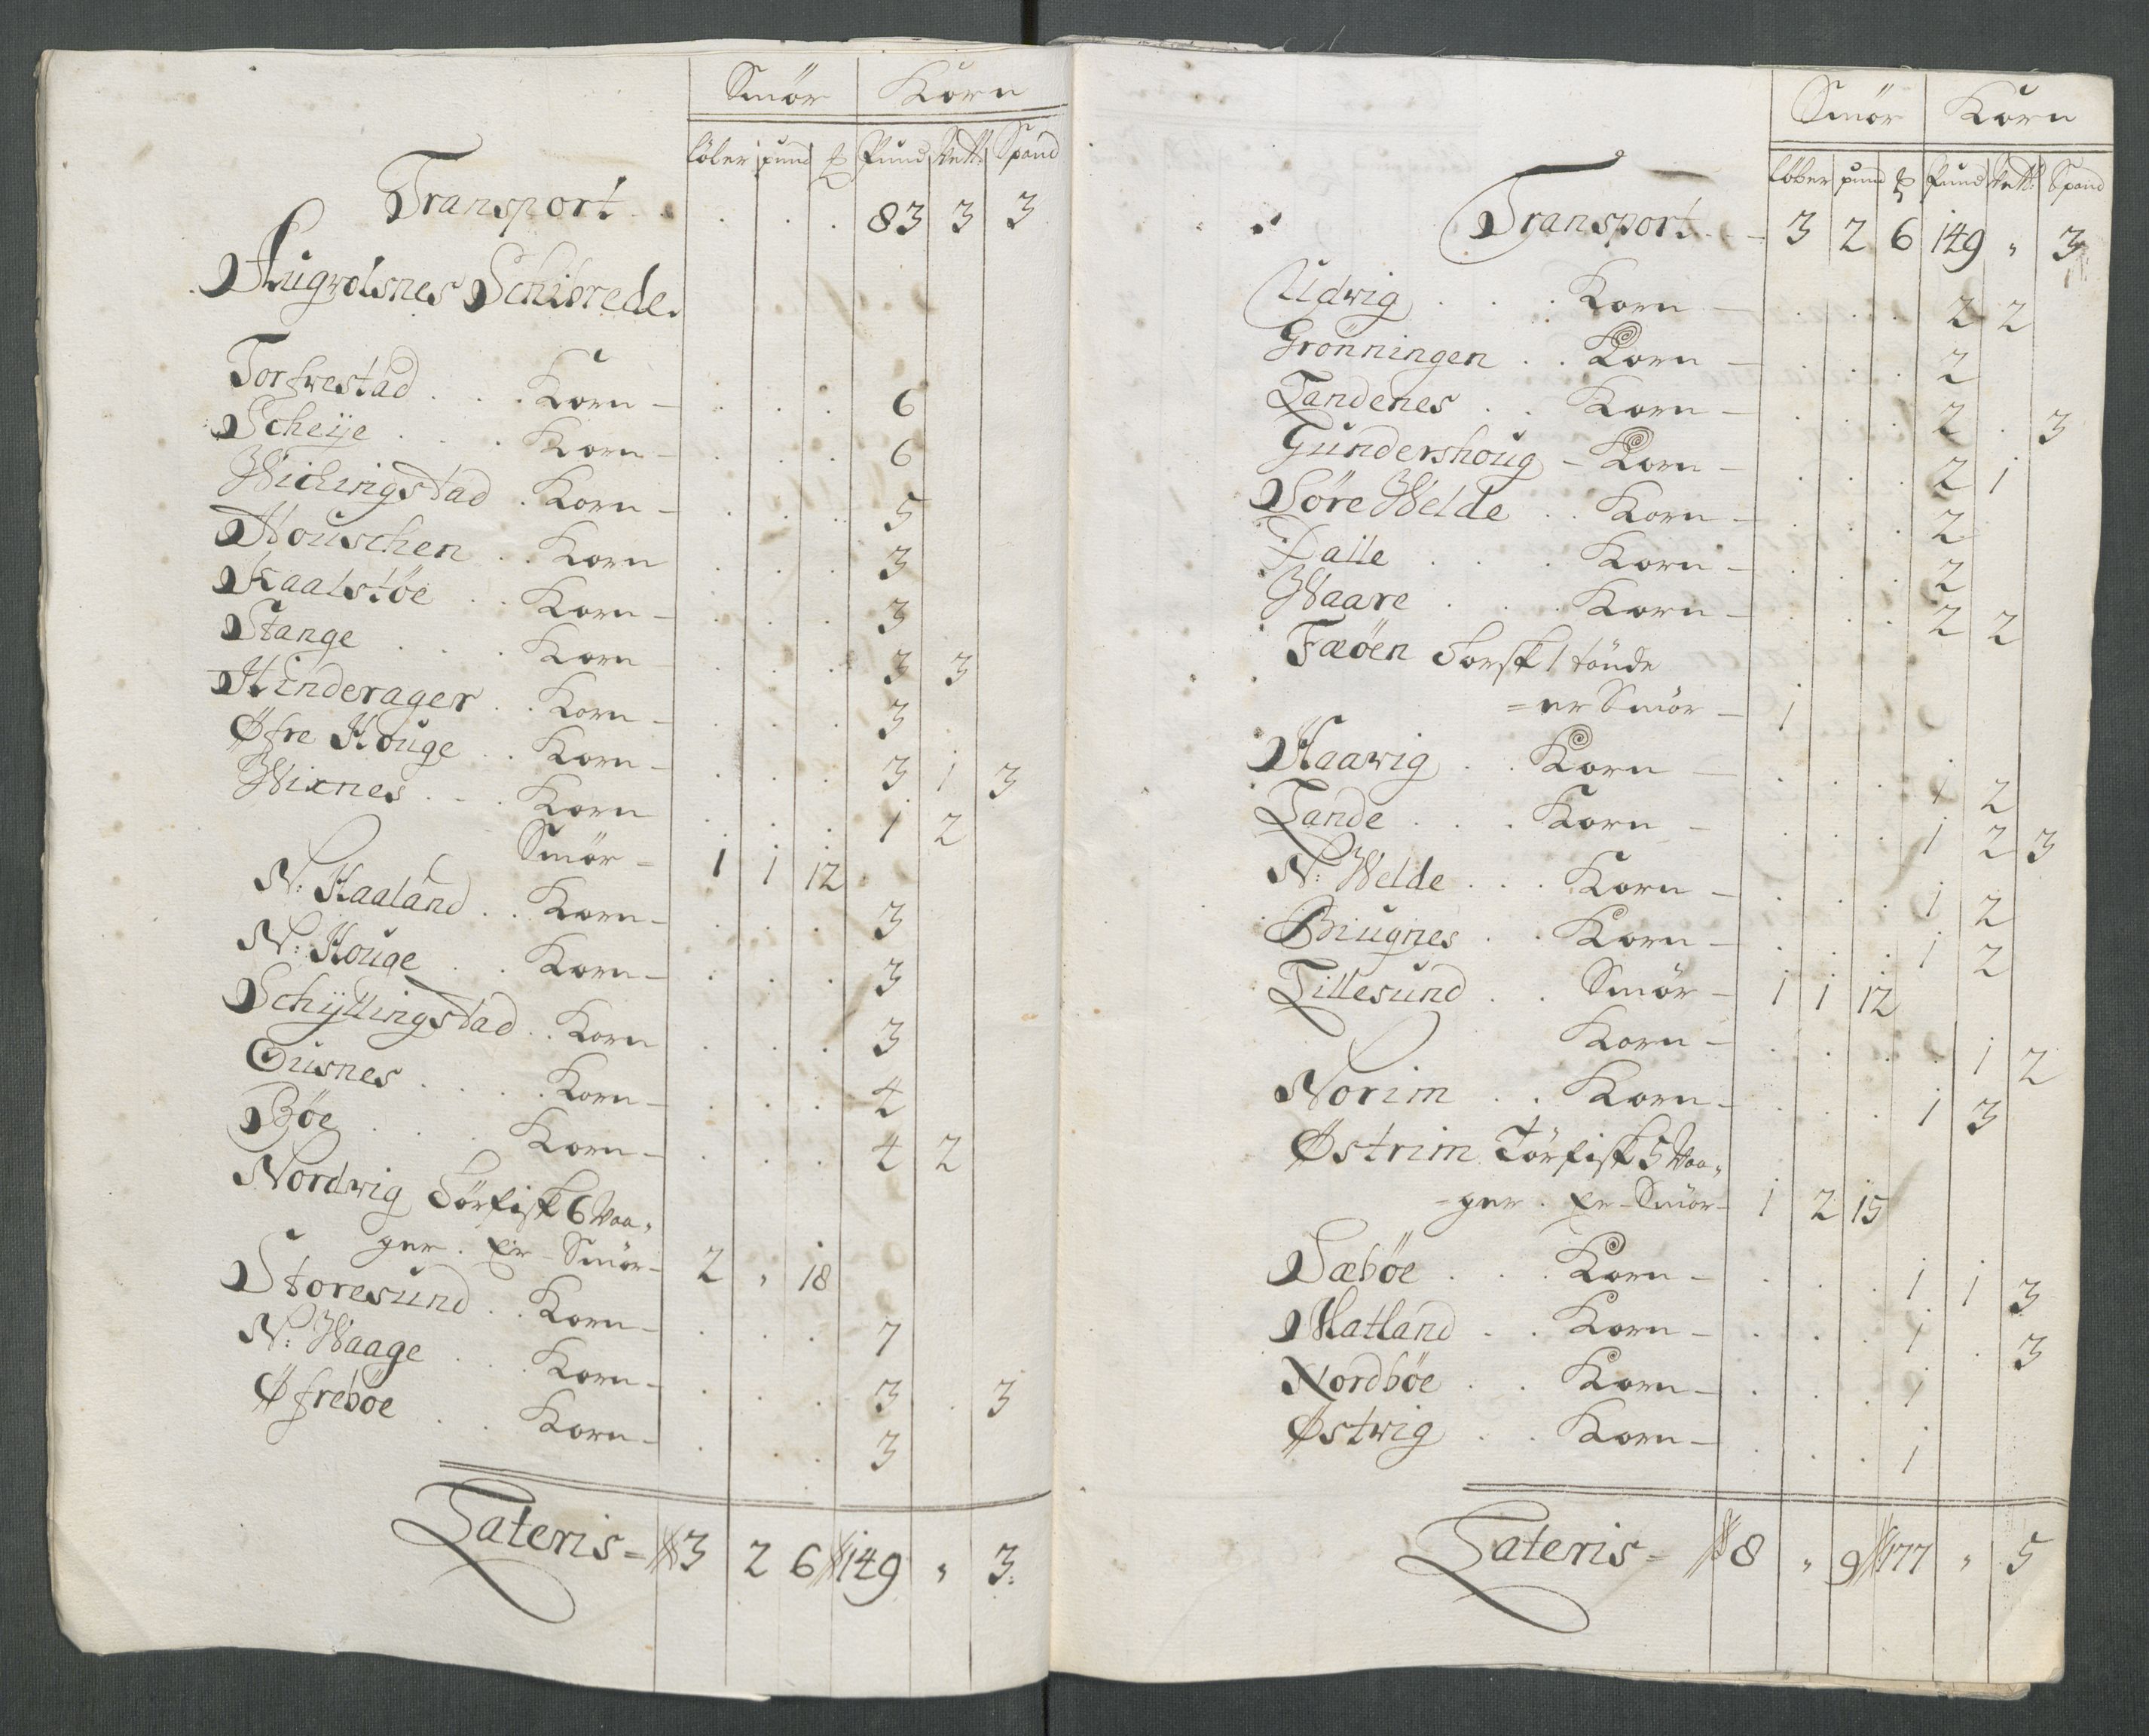 Smör Korn
löber pund ℔ Pund Vett: Spand
Transport . . . 83 3 3
Augvolsnes Schibrede.
Torfvestad . . . Korn – . . . 6
Scheije . . . Korn – . . . 6
Wichingstad . Korn – . . . 5
Houschen . . Korn . . . 3
Kaalstöe . . Korn – . . . 3
Stange . . . Korn . . . 3 3
Hinderager . . Korn – . . . 3
Øfre Houge . . Korn – . . . 3 1 3
Wixnes . . . Korn . . . 1 2
Smör – 1 1 12
N: Haaland . . Korn – . . . 3
N: Houge . . Korn – . . . 3
Schijllingstad . . Korn . . . 3
Ousnes . . . Korn – . . . 4
Böe . . . Korn – . . . 4 2
Nordvig Törfisk 6 Waa„
ger . Er – Smör – 2 „ 18
Storesund . . Korn – . . . 7
N: Waage . . Korn – . . . 3 . 3
Øfreböe . . Korn – . . . 3
Lateris = 3 2 6 149 „ 3.
Smör Korn
löber pund ℔ Pund Vett: Spand
Transport – 3 2 6 149 „ 3
Udvig . . . Korn – . . . 2 2
Grönningen . . Korn – . . . 2
Landenes . . Korn – . . . 2 . 3
Gundershoug – Korn – . . . 2 1
Söre Welde . . Korn – . . . 2
Dalle . . . Korn – . . . 2
Waare . . . Korn – . . . 2 2
Fæöen Torsk 1 tönde
= er Smör – 1
Haavig . . Korn – . . . 1 2
Lande . . . Korn – . . . 1 2 3
N: Welde . . . Korn – . . . 1 2
Biugnes . . Korn – . . . 1 2
Lillesund . . Smör – 1 1 12
Korn – . . . . 1 2
Norim . . Korn – . . . 1 3
Østrim Törfisk 5 Waa„
= ger . Er – Smör – 1 2 15
Sæböe . . . Korn – . . . 1 1 3
Hatland . . Korn – . . . 1 . 3
Nordböe . . Korn – . . . 1
Østvig . . Korn – . . . 1
Lateris = 8 „ 9 177 „ 5